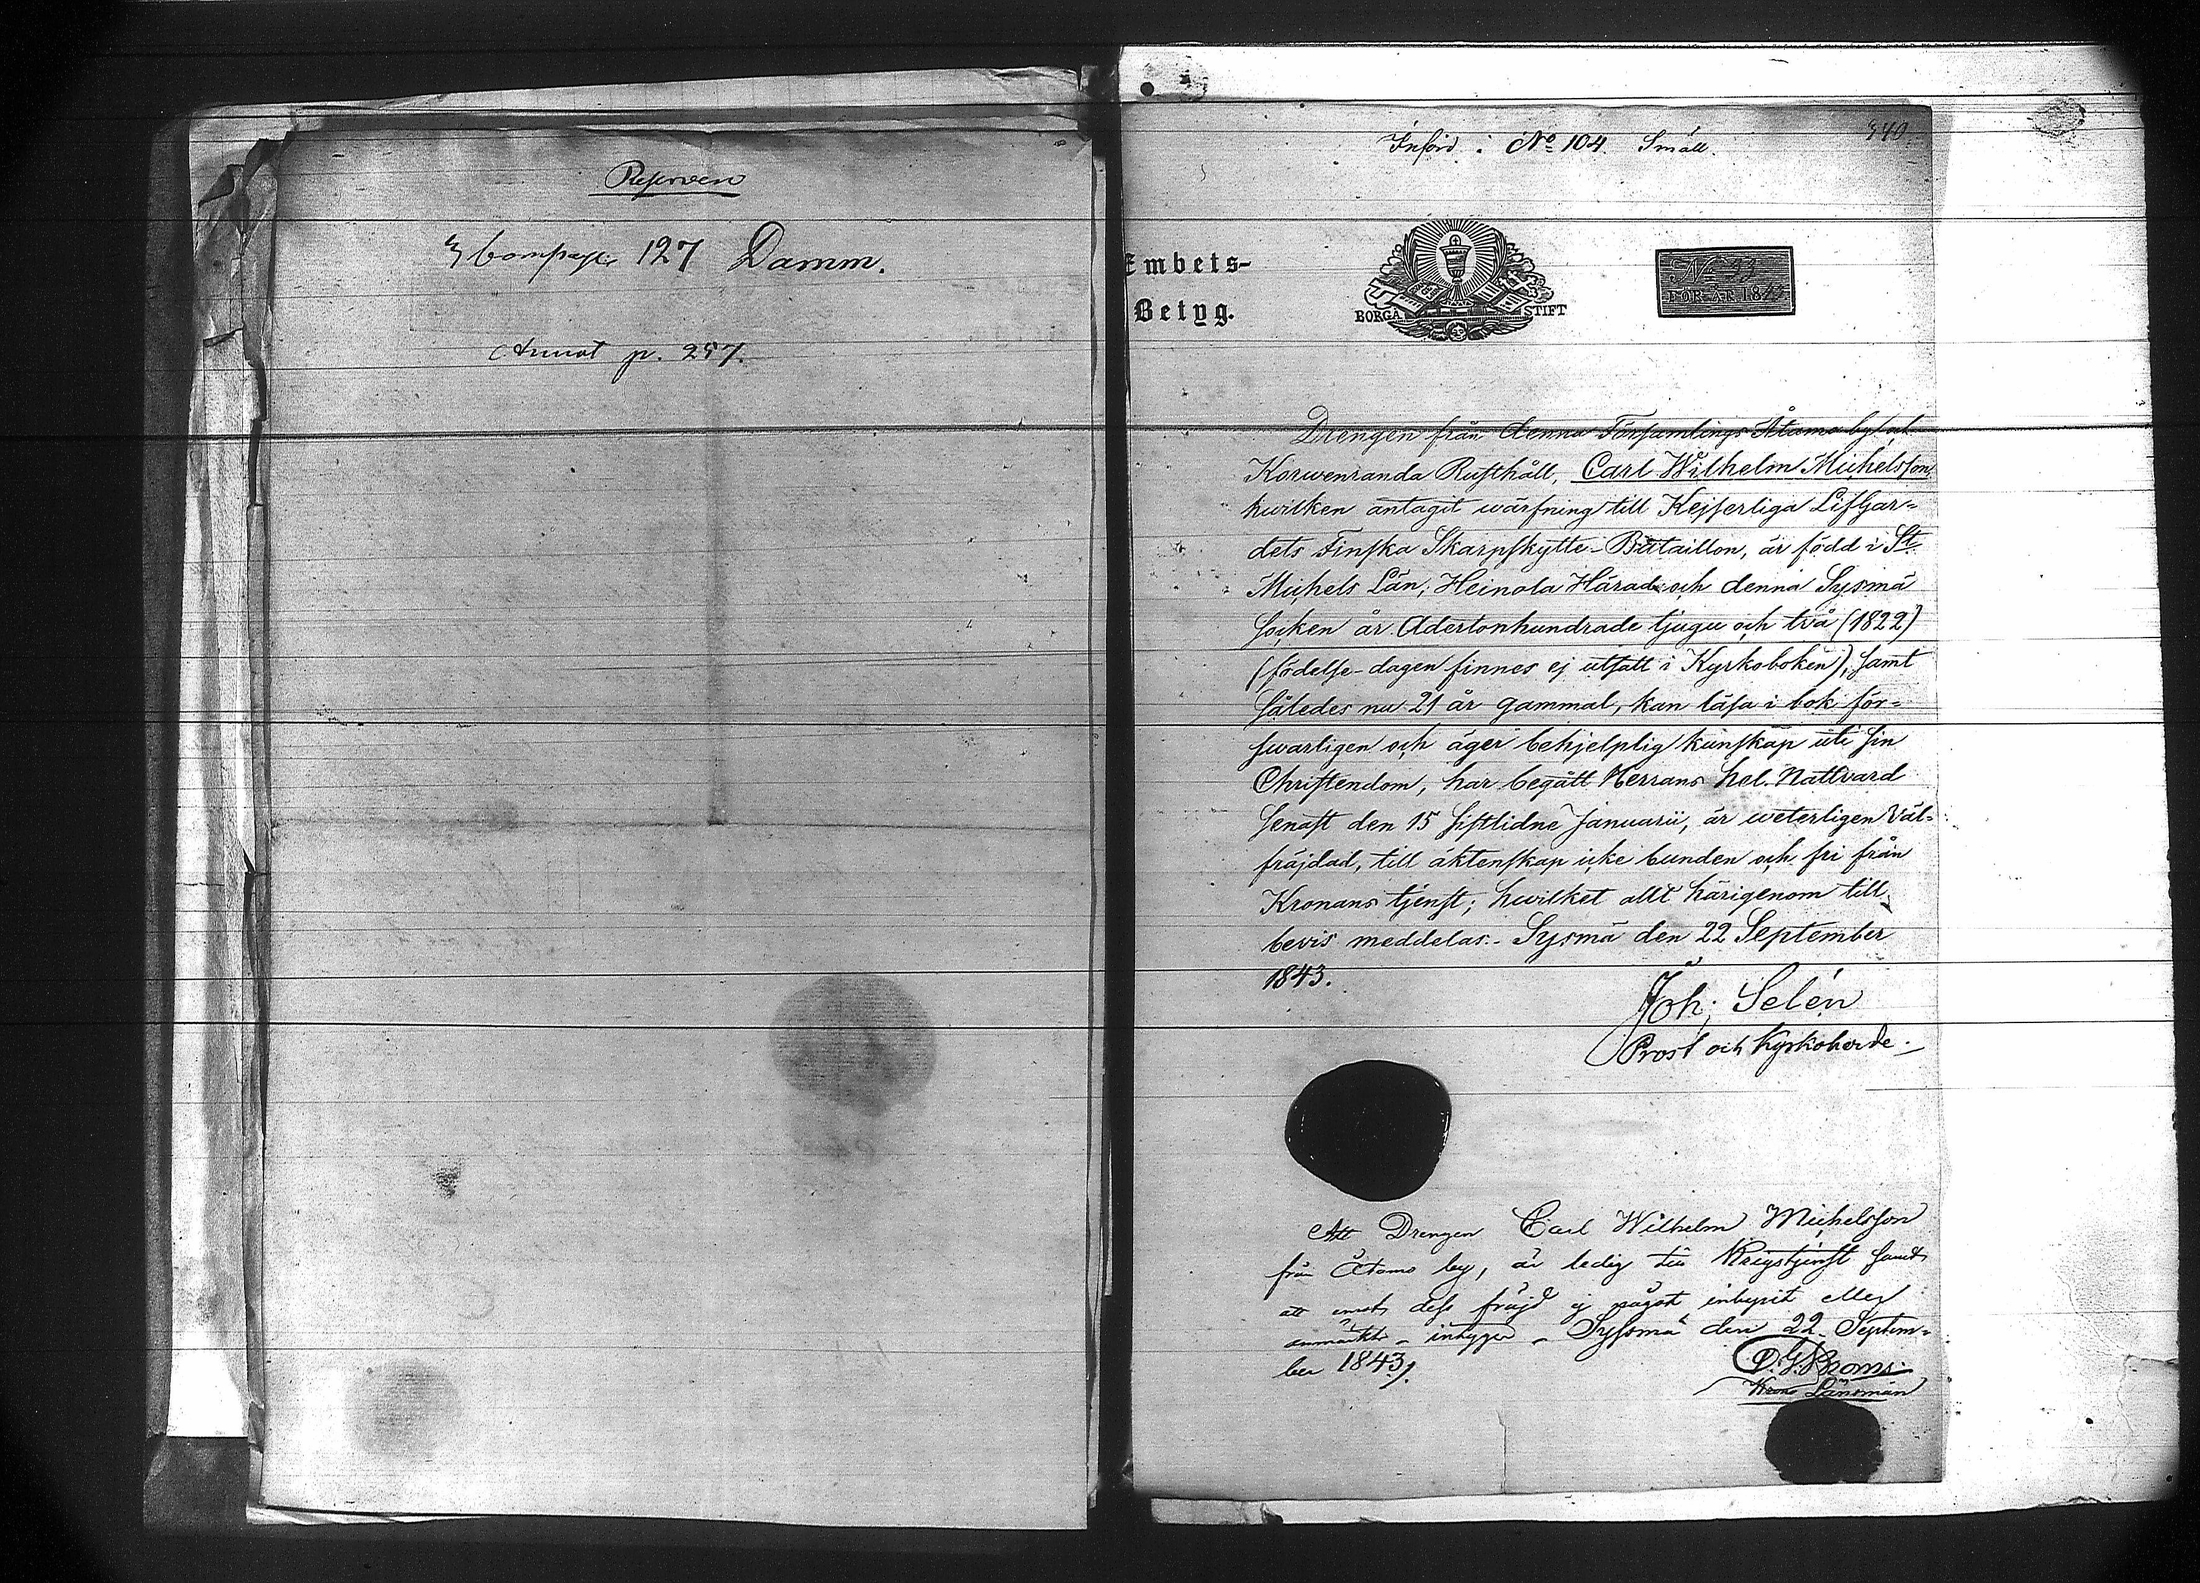 Reserven
4 Compagn. 127 Damm.
Annot p. 257.
Införd i No 104 Smäll.
340.
Embets-
Betyg.
BORGÅ STIFT
No 33
FÖR ÅR 184
Drengen från denna Församlings Åtamo by och
Korwenranda Rusthåll, Carl Wilhelm Michelsson
hwilken antagit wärfning till Kejserliga Lifgar-
dets Finska Skarpskytte-Bataillon, är född i St.
Michels Län, Heinola Härad och denna Sysmä
Socken år Adertonhundrade tjugu och två (1822)
(födelse-dagen finnes ej utsatt i Kyrkoboken), samt
således nu 21 år gammal, kan läsa i bok för-
swarligen och äger behjelplig kunskap uti sin
Christendom, har begått Herrans hel. Nattvard
senast den 15 sistlidne Januarii, är weterligen Väl-
fräjdad, till äktenskap icke bunden och fri från
Kronans tjenst; hwilket allt härigenom till
bevis meddelas.- Sysmä den 22 September
1843.
Joh. Selén
Prost och Kyrkoherde.
Att Drengen Carl Wilhelm Michelsson
från Åtamo by, är ledig till Krigstjenst samt
att emot dess fräjd ej något inlupit eller
anmärkts - intygar - Syssmä den 22 Septem-
ber 1843.
Krono Länsman